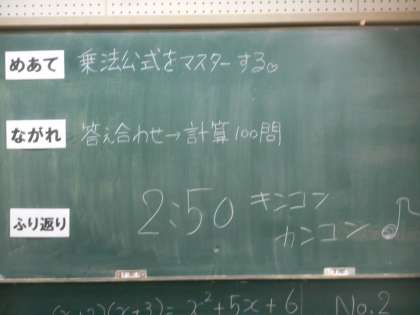 めあて 乗法公式をマスターする。
ながれ 答え合わせ→計算100問
ふり返り 2:50 キンコン
カンコン♪
)(x+3)=x²+5x+6 No.2